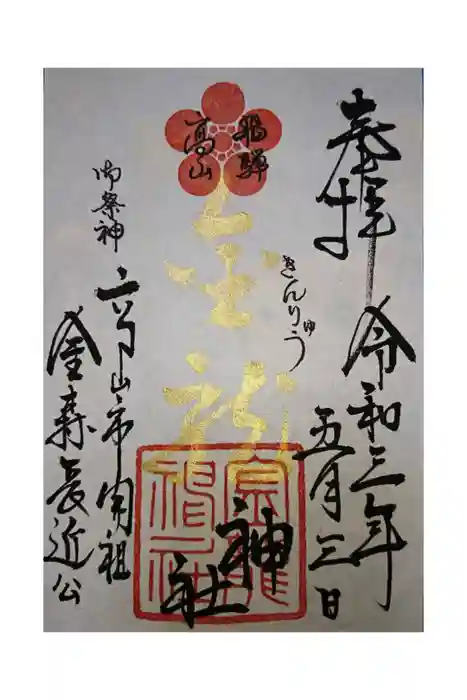 奉拝
令和三年
五月三日
飛騨
高山
金龍
きんりゅう
神社
金龍神社
御祭神
高山市開祖
金森長近公